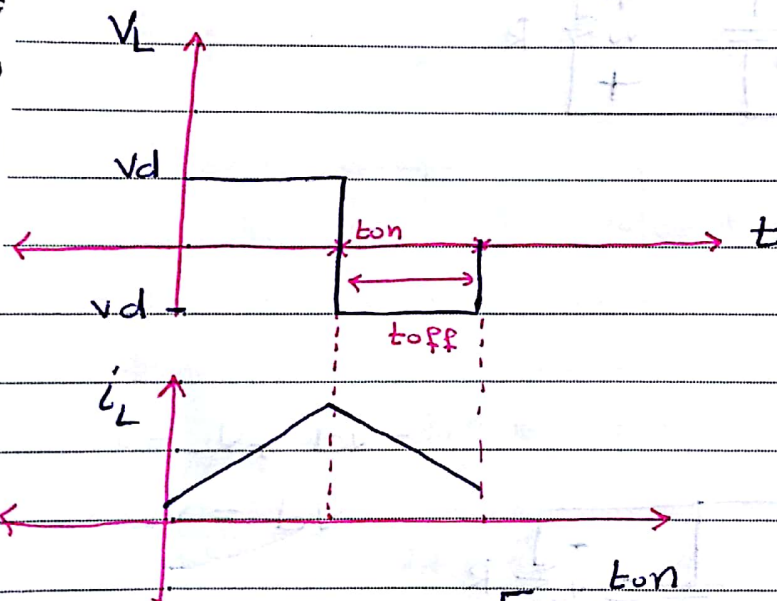 VL
Vd
ton
t
vd
toff
iL
ton